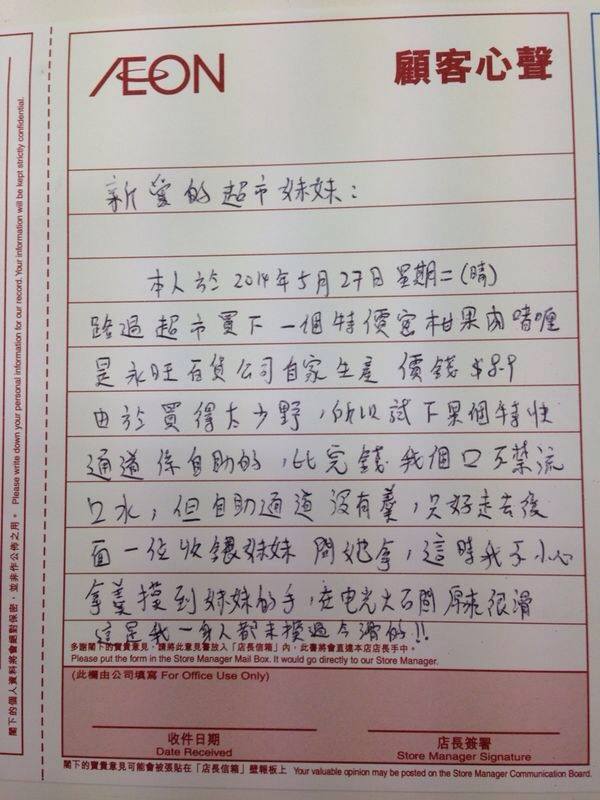 ÆON
顧客心聲
新愛的超市妹妹：
本人於2014年5月27日星期二(晴)
路過超市買下一個特價蜜柑果肉啫喱
是永旺百貨公司自家生產 價錢$8.9
由於買得太少野，所以試下果個特快
通道係自助的，比完錢我個口不禁流
口水，但自助通道沒有羹，只好走去後
面一位收銀妹妹問她拿，這時我不小心
拿羹摸到妹妹的手，在電光火石間原來很滑
這是我一身人都未摸過今滑的!!
多謝閣下的寶貴意見，請將此意見書放入「店長信箱」內，此書將會直達本店店長手中。
Please put the form in the Store Manager Mail Box. It would go directly to our Store Manager.
(此欄由公司填寫 For Office Use Only)
收件日期
Date Received
店長簽署
Store Manager Signature
閣下的寶貴意見可能會被張貼在「店長信箱」壁報板上 Your valuable opinion may be posted on the Store Manager Communication Board.
閣下的個人資料將會絕對保密，並非作公佈之用。 Please write down your personal information for our record. Your information will be kept strictly confidential.